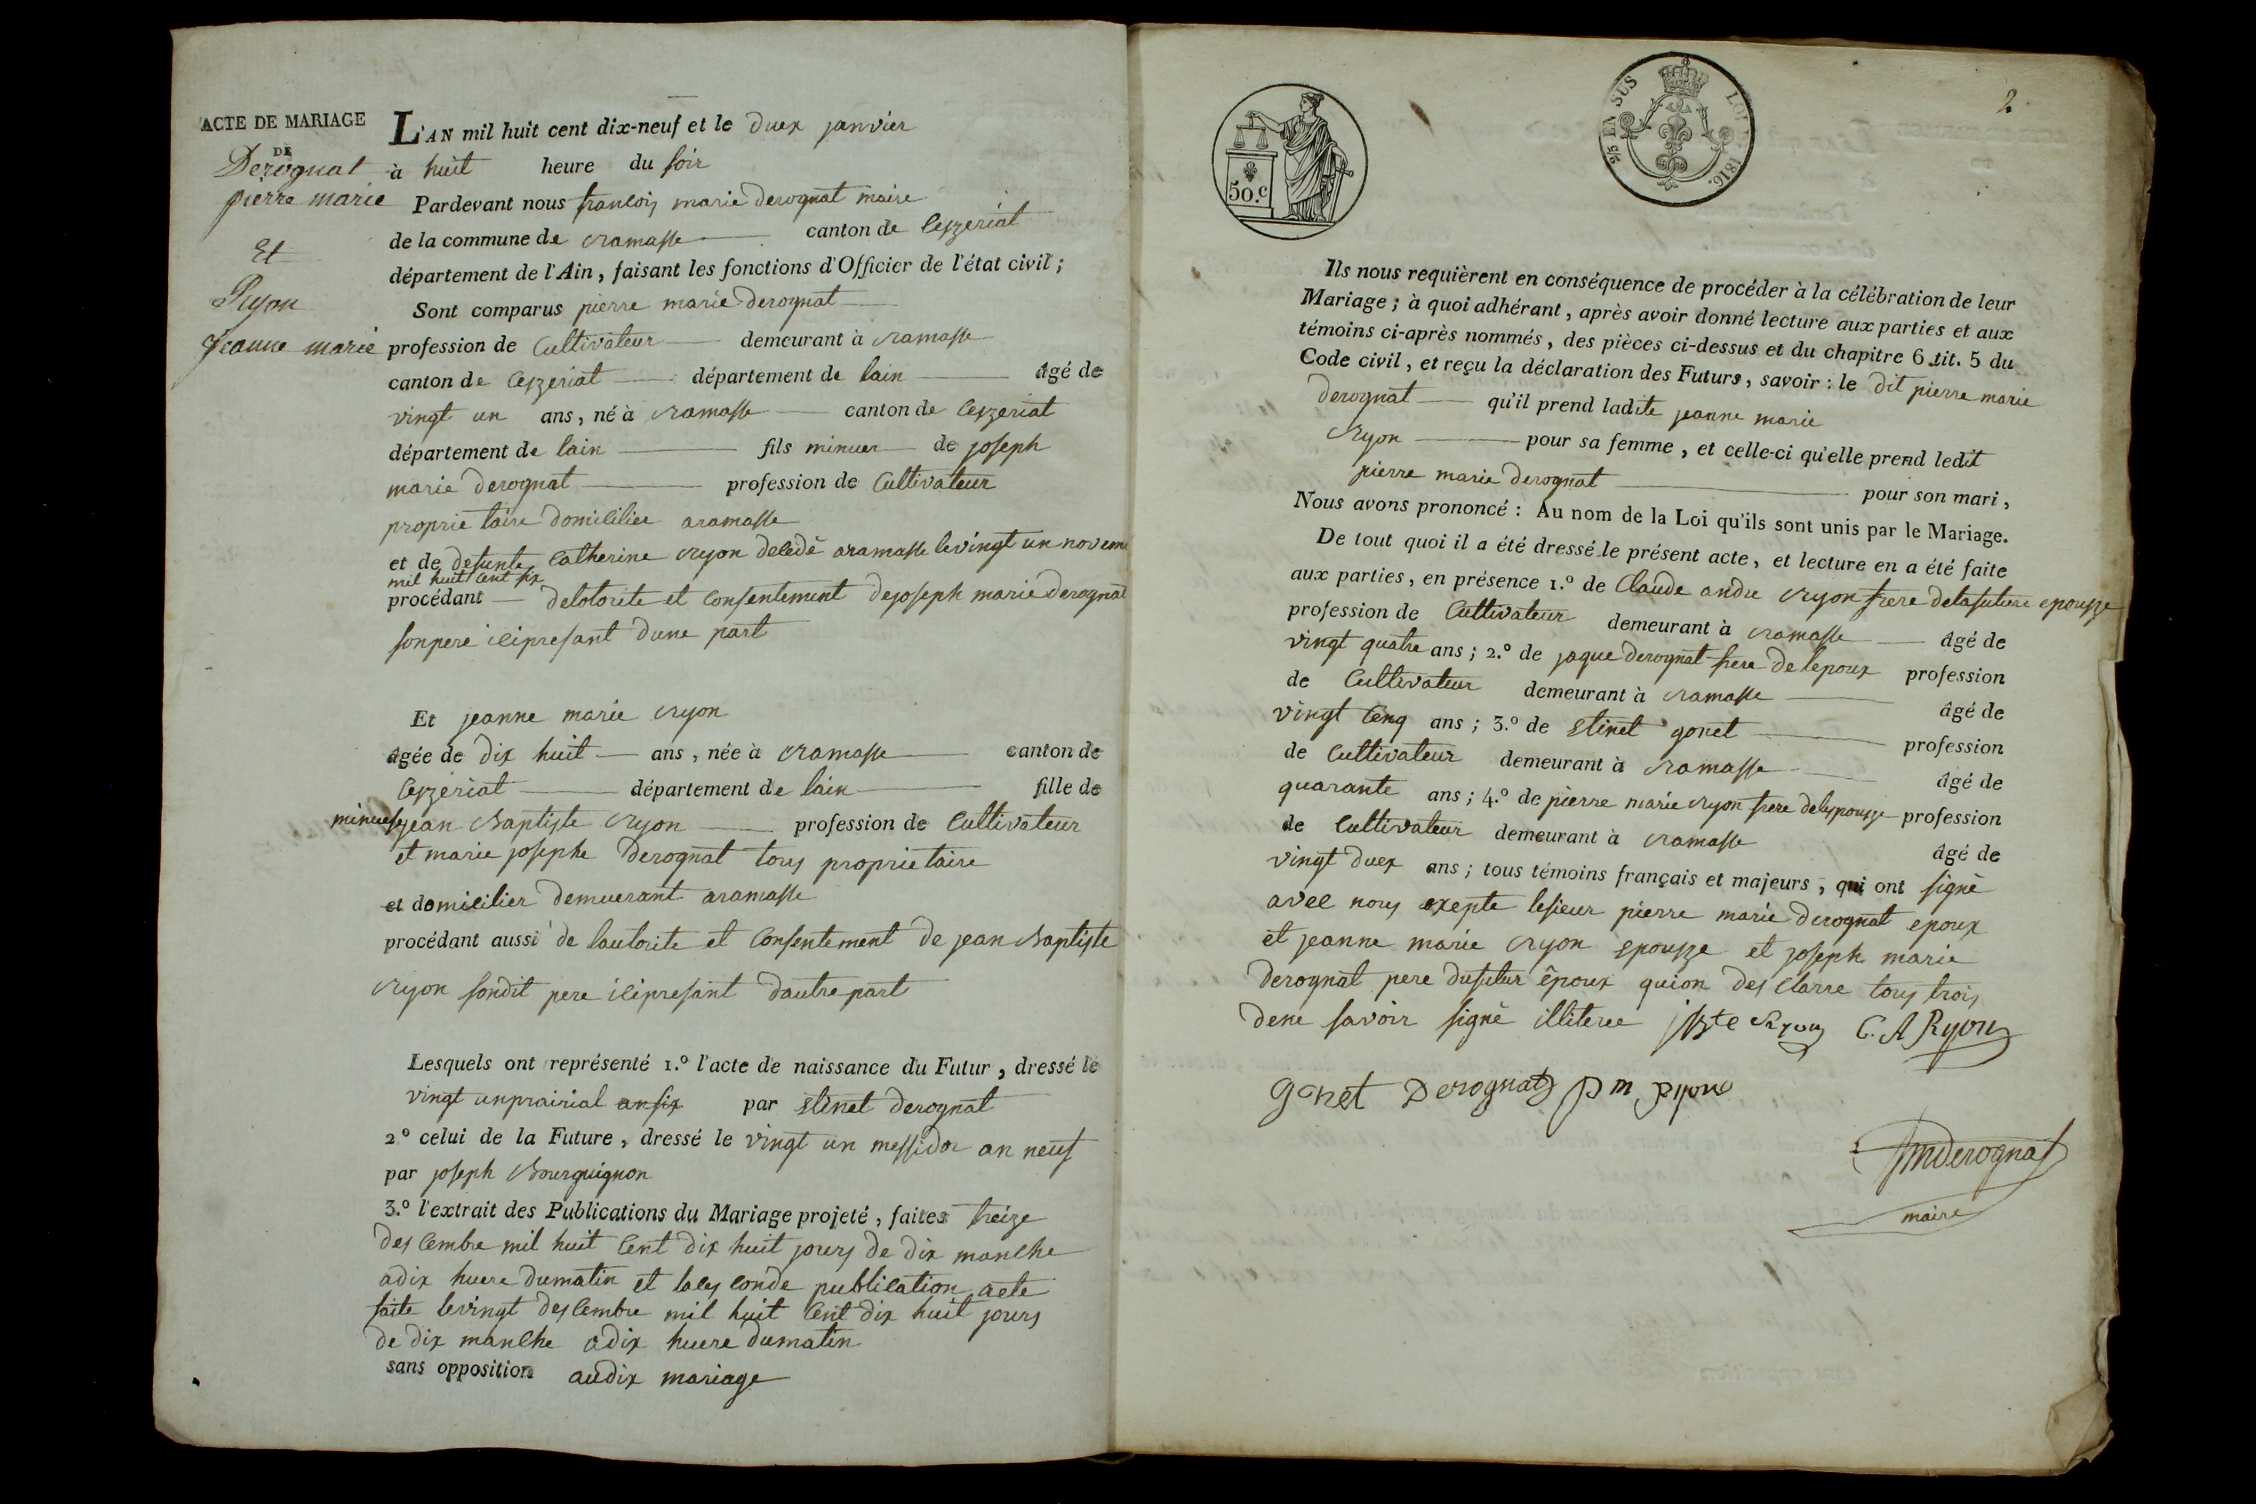 ACTE DE MARIAGE
DE
Derognat
pierre marie
Et
Ryon
jeanne marie
L'AN mil huit cent dix-neuf et le duex janvier
à huit heure du soir
Pardevant nous francois marie derognat maire
de la commune de ramasse canton de Ceyzeriat
département de l'Ain, faisant les fonctions d'Officier de l'état civil;
Sont comparus pierre marie derognat
profession de Cultivateur demeurant à ramasse
canton de Ceyzeriat département de lain âgé de
vingt un ans, né à ramasse canton de Ceyzeriat
département de lain fils minuer de joseph
marie derognat profession de Cultivateur
proprie taire domicilier aramasse
et de defunte Catherine ryon dècèdè aramasse levingt un novem
mil huit Cent six
procédant delotorite et Consentement dejoseph marie derognat
sonpere icipresant dune part
Et jeanne marie ryon
âgée de dix huit ans, née à ramasse canton de
Ceyzeriat département de lain fille de
minuer jean Baptiste ryon profession de Cultivateur
et marie josephe derognat tous proprietaire
et domicilier demuerant aramasse
procédant aussi de lautorite et Consentement de jean Baptiste
ryon sondit pere icipresant dautre part
Lesquels ont représenté 1.º l'acte de naissance du Futur, dressé le
vingt unprairial an six par Etinet derognat
2º celui de la Future, dressé le vingt un messidor an neuf
par joseph Bourguignon
3.º l'extrait des Publications du Mariage projeté, faites treize
des Cembre mil huit Cent dix huit jours de dix manche
adix huere dumatin et lases Conde publication aete
faite levingt desCembre mil huit Cent dix huit jours
de dix manche adix huere dumatin
sans opposition audix mariage
2
50.c
25 EN SUS
LOI DE 1816.
Ils nous requièrent en conséquence de procéder à la célébration de leur
Mariage; à quoi adhérant, après avoir donné lecture aux parties et aux
témoins ci-après nommés, des pièces ci-dessus et du chapitre 6 tit. 5 du
Code civil, et reçu la déclaration des Futurs, savoir: le dit pierre marie
derognat qu'il prend ladite jeanne marie
Ryon pour sa femme, et celle-ci qu'elle prend ledit
pierre marie derognat pour son mari,
Nous avons prononcé: Au nom de la Loi qu'ils sont unis par le Mariage.
De tout quoi il a été dressé le présent acte, et lecture en a été faite
aux parties, en présence 1.º de Claude andre ryon frere delafuture epousze
profession de Cultivateur demeurant à ramasse âgé de
vingt quatre ans; 2.º de jaque derognat frere de lepoux profession
de Cultivateur demeurant à ramasse âgé de
vingt Cenq ans; 3.º de Etinet gonet profession
de Cultivateur demeurant à ramasse âgé de
quarante ans; 4.º de pierre marie ryon frere delepousze profession
de Cultivateur demeurant à ramasse âgé de
vingt duex ans; tous témoins français et majeurs, qui ont signè
avec nous exepte lesieur pierre marie derognat epoux
et jeanne marie ryon epousze et joseph marie
derognat pere dufutur époux quion des Clarre tous trois
dene savoir signè illiteree j Bte Ryon C. A Ryon
gonet Derognat p m ryon
fm derognat
maire